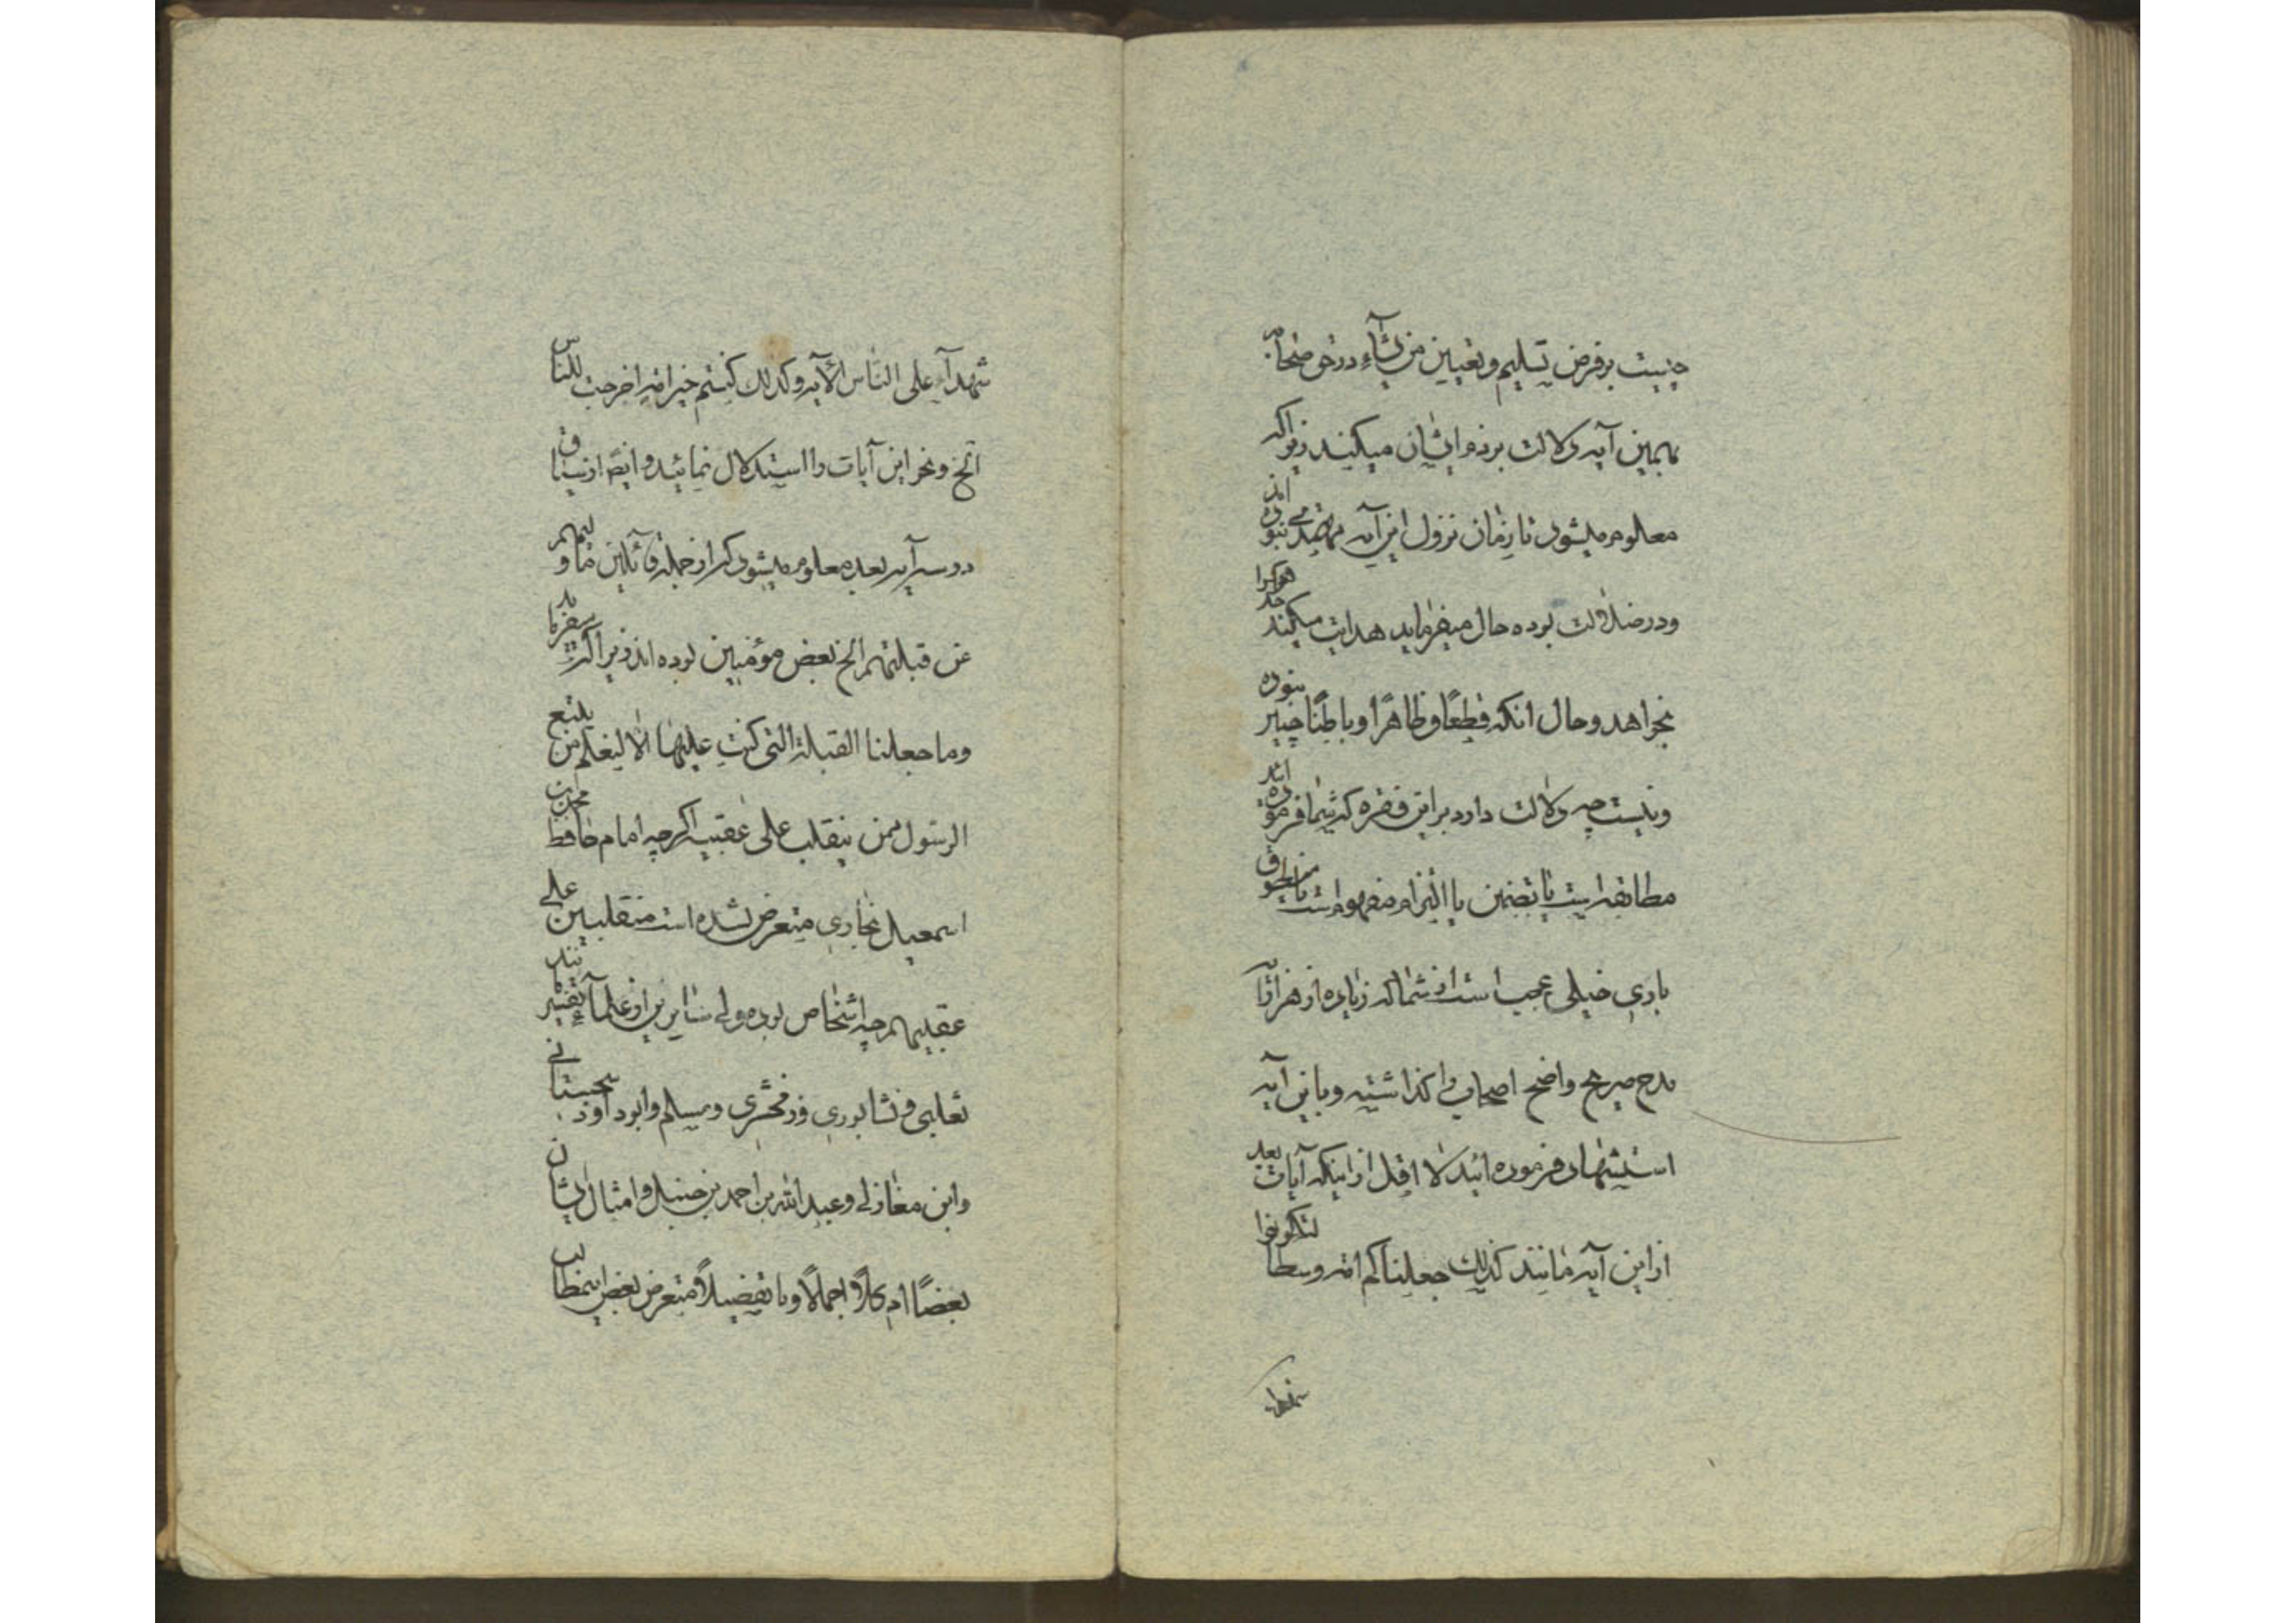 چیست بر فرض تسلیم و تعیین من یشآء در حق صحابه
بهمین آیه دلالت بر ذم ایشان میکند زیرا که
معلوم میشود تا زمان نزول این آیه مهتدی نبوده اند
و در ضلالت بوده حال میفرماید هدایت میکند هر که را
بخواهد و حال آنکه قطعًا و ظاهرًا و باطنًا چنین نبوده
و نیست چه دلالت دارد بر این فقره که شما فرموده اید
مطابقه است یا تضمن یا التزام مفهوم است یا منطوق
باری خیلی عجب است از شما که زیاده از هزار آیه
مدح صریح واضح اصحاب را گذاشته و باین آیه
استشهاد فرموده ائید لا اقل از اینکه آیات بعد
از این آیه مانند کذلک جعلناکم امة وسطا لتکونوا
شهدآء
شهدآء علی الناس الآیه و کذلک کنتم خیر امة اخرجت للناس
الخ و نحو این آیات را استدلال نمائید و ایضًا از سیاق
دو سه آیه بعد معلوم میشود که از جمله قائلین ما ولیهم
عن قبلتهم الخ بعض مؤمنین بوده اند زیرا که میفرماید
و ما جعلنا القبلة التی کنت علیها الا لنعلم من یتبع
الرسول ممن ینقلب علی عقبیه اگرچه امام حافظ محمد بن
اسمعیل بخاری متعرض نشده است منقلبین علی
عقبیهم چه اشخاص بوده ولی سایرین از علمآء تفسیر
ثعلبی و نشابوری و زمخشری و مسلم و ابو داود سجستانی
و ابن مغازلی و عبد الله بن احمد بن حنبل و امثال ایشان
بعضًا ام کلاً و اجمالاً و یا تفضیلاً متعرض بعض اینمطالب